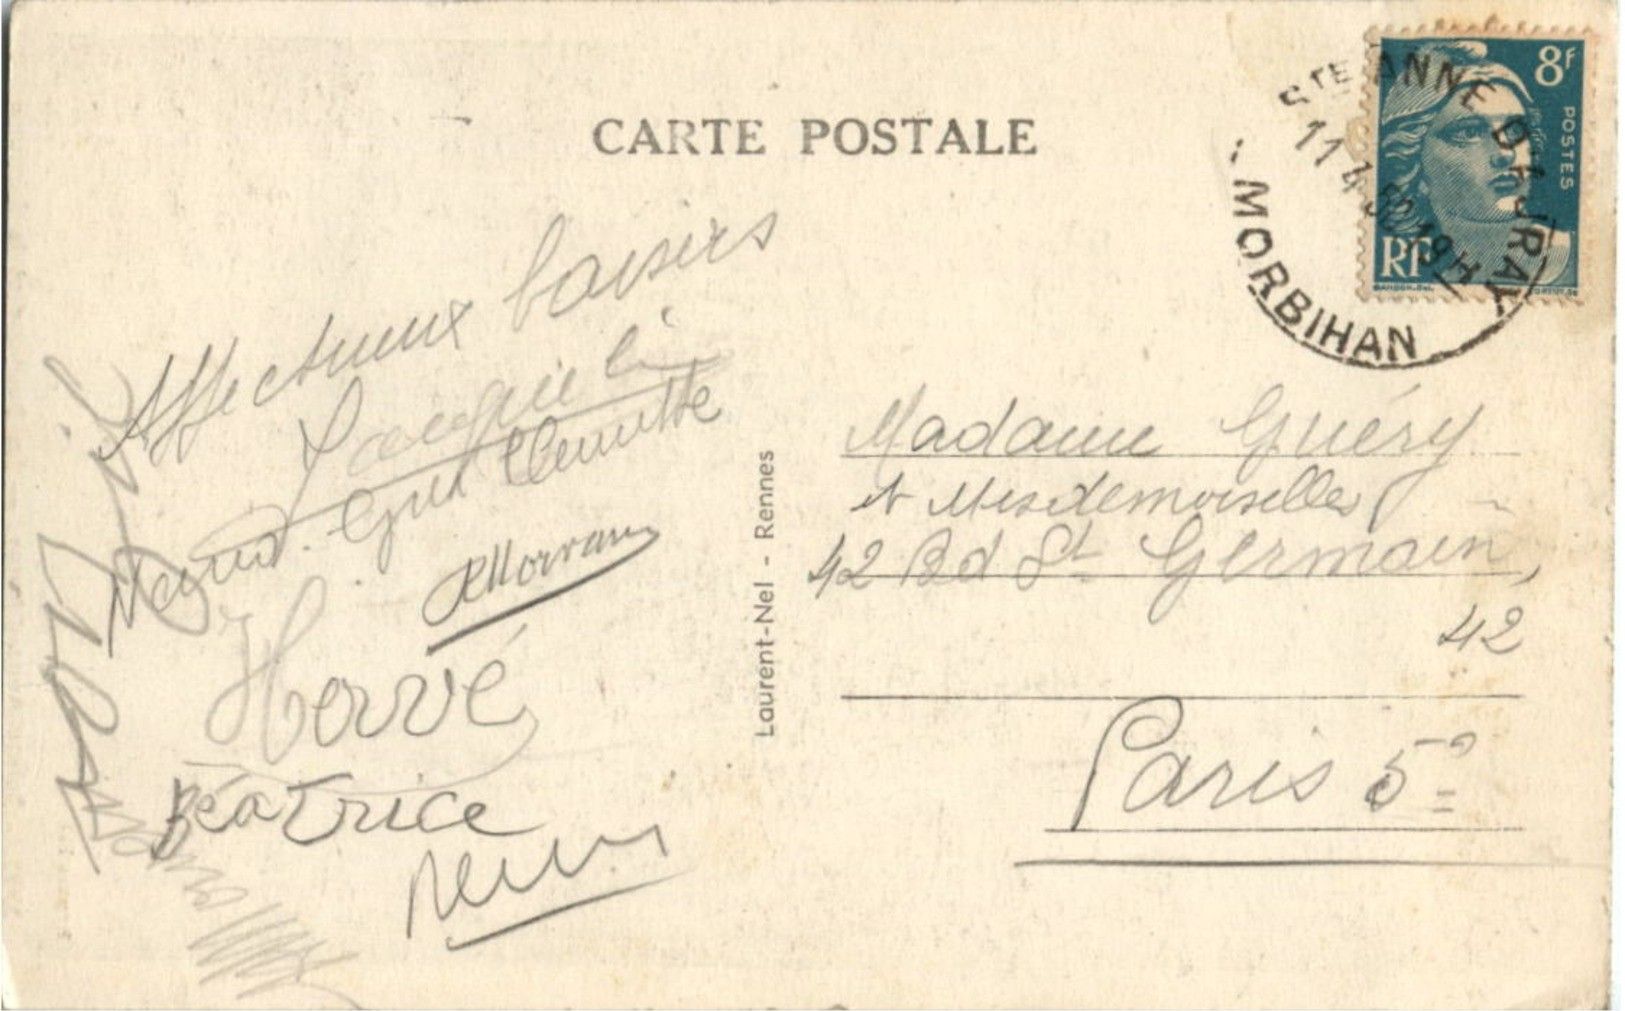 CARTE POSTALE
8F
POSTES
RF
STE ANNE D'AURAY
11 4 50 19H
MORBIHAN
Affectueux baisers
Guillemette
RMorvan
Hervé
Béatrice
Laurent-Nel - Rennes
Madame Guéry
et Mesdemoiselles
42 Bd St Germain,
42
Paris 5e